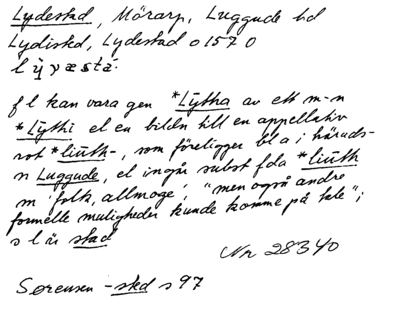 Lydestad, Mörarp, Luggude hd
Lydisted, Lydestad o 1570
lỳvæstá·
f l kan vara gen *Lȳtha av ett m-n
*Lȳthi el en bildn till en appellativ
rot *liūth-, som föreligger bl a i härads-
n Luggude, el ingår subst fda *liūth
m 'folk, allmoge', "men også andre
formelle muligheder kunde komme på tale";
s l är stad
Nr 28340
Sørensen -sted s 97